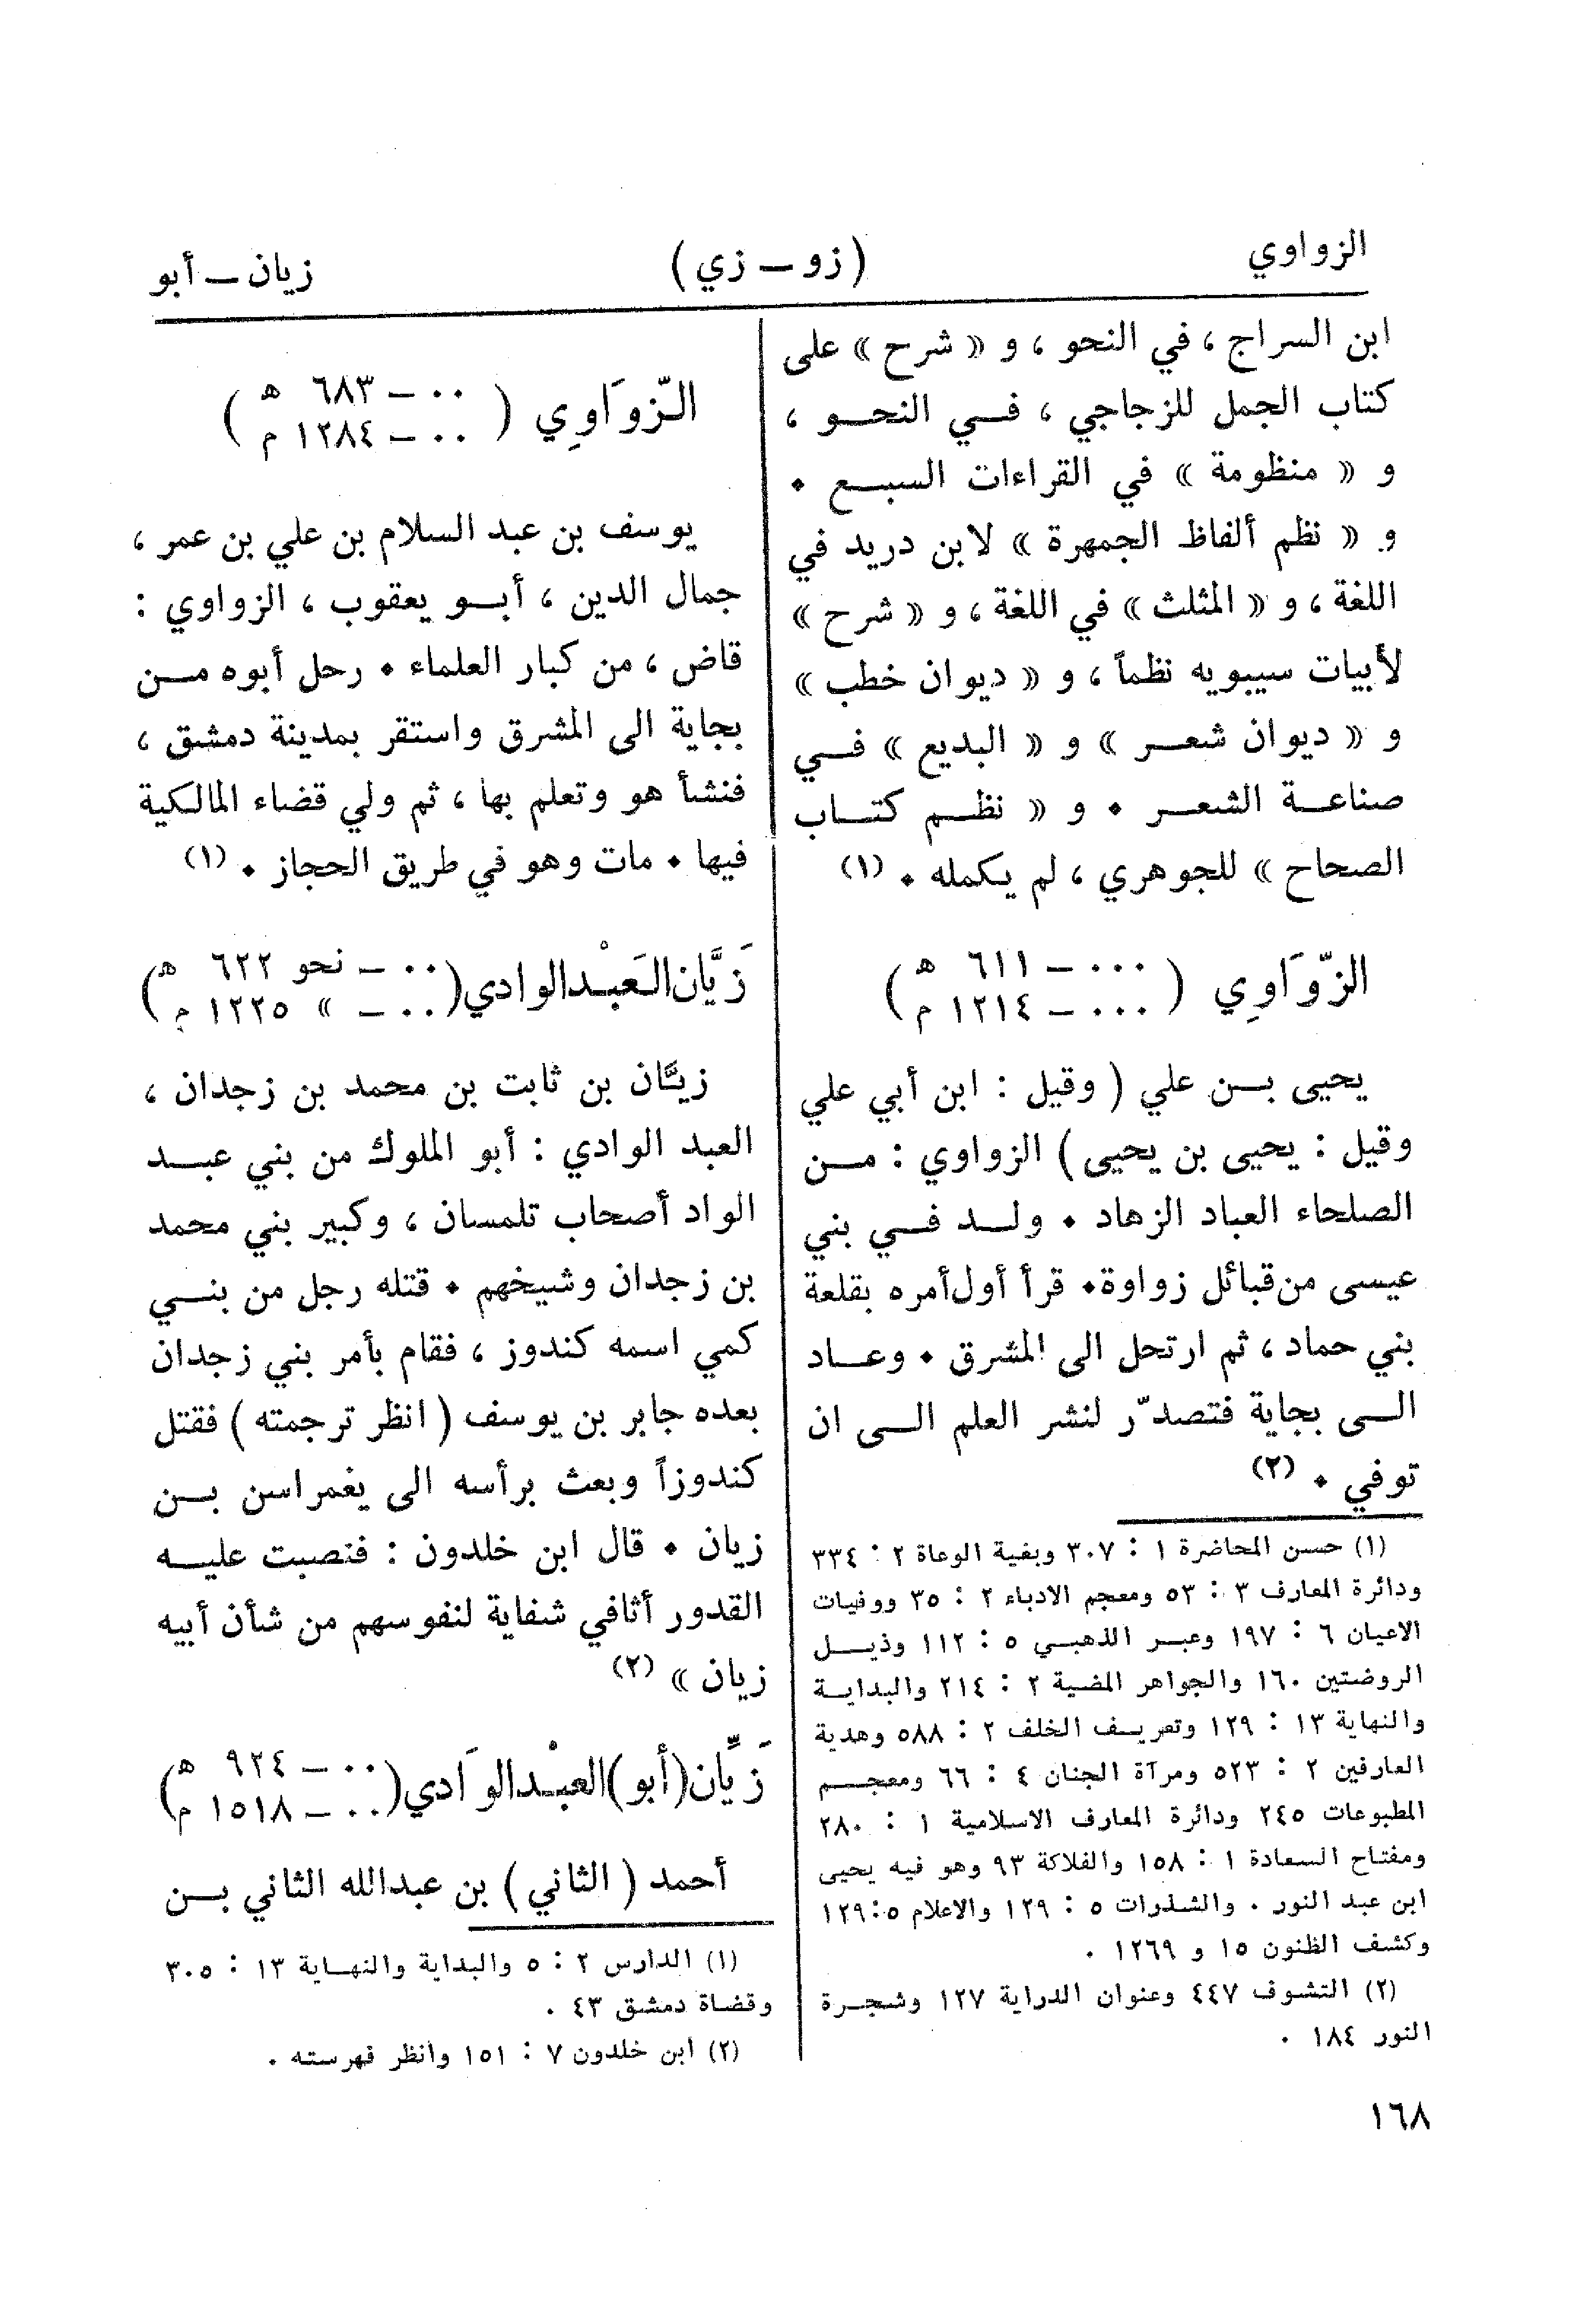 الزواوي
(زو — زي)
زيان — أبو
ابن السراج ، في النحو ، و « شرح » على
كتاب الجمل للزجاجي ، في النحو ،
و « منظومة » في القراءات السبع .
و « نظم ألفاظ الجمهرة » لابن دريد في
اللغة ، و « المثلث » في اللغة ، و « شرح »
لأبيات سيبويه نظماً ، و « ديوان خطب »
و « ديوان شعر » و « البديع » في
صناعة الشعر . و « نظم كتاب
الصحاح » للجوهري ، لم يكمله . (١)
الزّوَاوِي ( ٠٠٠ — ٦١١ هـ
٠٠٠ — ١٢١٤ م )
يحيى بن علي ( وقيل : ابن أبي علي
وقيل : يحيى بن يحيى ) الزواوي : من
الصلحاء العباد الزهاد . ولد في بني
عيسى من قبائل زواوة . قرأ أول أمره بقلعة
بني حماد ، ثم ارتحل الى المشرق . وعاد
الى بجاية فتصدّر لنشر العلم الى ان
توفي . (٢)
(١) حسن المحاضرة ١ : ٣٠٧ وبغية الوعاة ٢ : ٣٣٤
ودائرة المعارف ٣ : ٥٣ ومعجم الادباء ٢ : ٣٥ ووفيات
الاعيان ٦ : ١٩٧ وعبر الذهبي ٥ : ١١٢ وذيل
الروضتين ١٦٠ والجواهر المضية ٢ : ٢١٤ والبداية
والنهاية ١٣ : ١٢٩ وتعريف الخلف ٢ : ٥٨٨ وهدية
العارفين ٢ : ٥٢٣ ومرآة الجنان ٤ : ٦٦ ومعجم
المطبوعات ٢٤٥ ودائرة المعارف الاسلامية ١ : ٢٨٠
ومفتاح السعادة ١ : ١٥٨ والفلاكة ٩٣ وهو فيه يحيى
ابن عبد النور . والشذرات ٥ : ١٢٩ والاعلام ٥ : ١٢٩
وكشف الظنون ١٥ و ١٢٦٩ .
(٢) التشوف ٤٤٧ وعنوان الدراية ١٢٧ وشجرة
النور ١٨٤ .
الزّوَاوِي ( ٠٠ — ٦٨٣ هـ
٠٠ — ١٢٨٤ م )
يوسف بن عبد السلام بن علي بن عمر ،
جمال الدين ، أبو يعقوب ، الزواوي :
قاض ، من كبار العلماء . رحل أبوه من
بجاية الى المشرق واستقر بمدينة دمشق ،
فنشأ هو وتعلم بها ، ثم ولي قضاء المالكية
فيها . مات وهو في طريق الحجاز . (١)
زَيَّان العَبْد الوادي ( ٠٠ — نحو ٦٢٢ هـ
٠٠ — » ١٢٢٥ م )
زيَّان بن ثابت بن محمد بن زجدان ،
العبد الوادي : أبو الملوك من بني عبد
الواد أصحاب تلمسان ، وكبير بني محمد
بن زجدان وشيخهم . قتله رجل من بني
كمي اسمه كندوز ، فقام بأمر بني زجدان
بعده جابر بن يوسف ( انظر ترجمته ) فقتل
كندوزاً وبعث برأسه الى يغمراسن بن
زيان . قال ابن خلدون : فنصبت عليه
القدور أثافي شفاية لنفوسهم من شأن أبيه
زيان » (٢)
زَيَّان (أبو) العبْد الوَادي ( ٠٠ — ٩٢٤ هـ
٠٠ — ١٥١٨ م )
أحمد ( الثاني ) بن عبدالله الثاني بن
(١) الدارس ٢ : ٥ والبداية والنهاية ١٣ : ٣٠٥
وقضاة دمشق ٤٣ .
(٢) ابن خلدون ٧ : ١٥١ وانظر فهرسته .
١٦٨